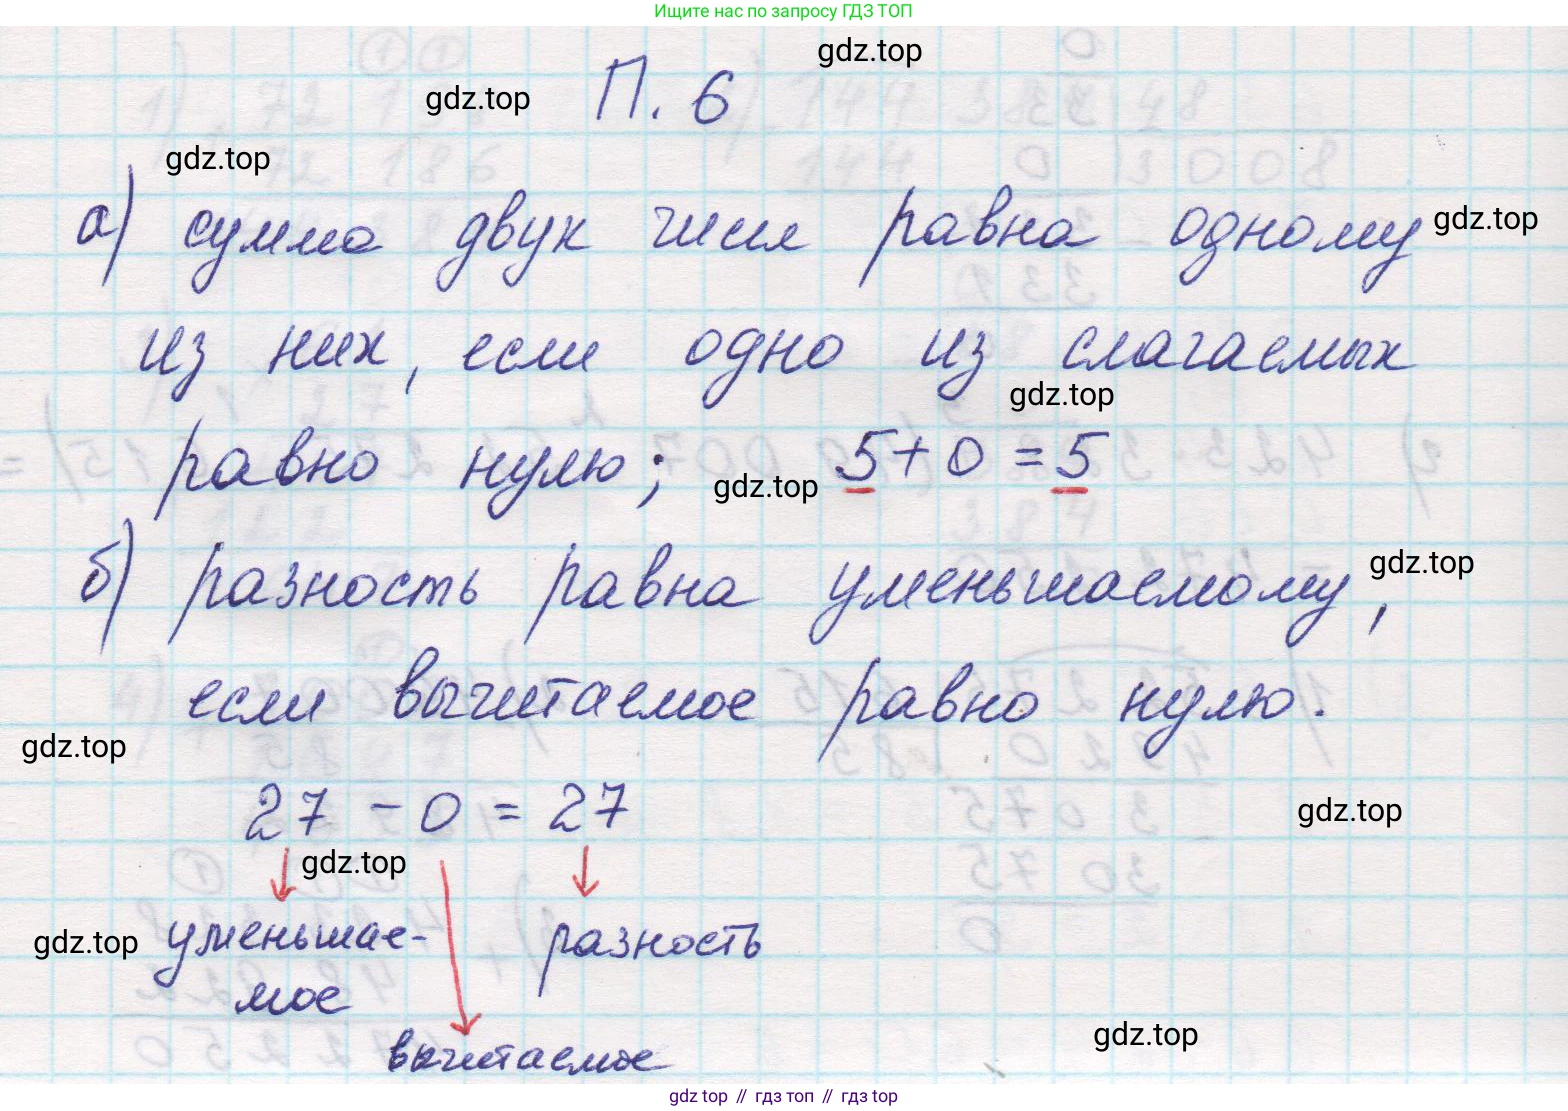 Ищите нас по запросу ГДЗ ТОП
gdz.top
gdz.top П. 6
gdz.top
а) сумма двух чисел равна одному gdz.top
из них, если одно из слагаемых
gdz.top
равно нулю; gdz.top 5 + 0 = 5
б) разность равна уменьшаемому, gdz.top
если вычитаемое равно нулю.
gdz.top
27 - 0 = 27 gdz.top
gdz.top
gdz.top уменьшае- разность
мое
gdz.top
вычитаемое
gdz.top // гдз топ // гдз.top